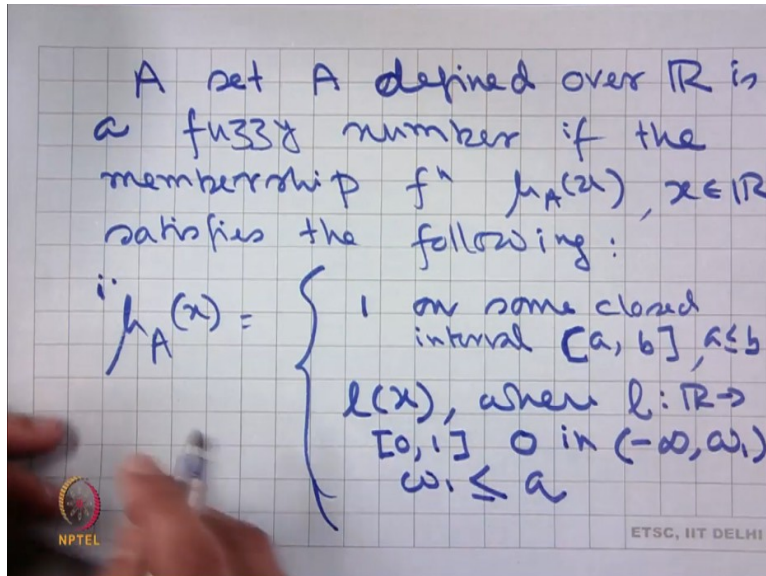 A set A defined over ℝ is
a fuzzy number if the
membership fⁿ μ_A(x), x ∈ ℝ
satisfies the following:
i. μ_A(x) = { 1 on some closed
interval [a, b], a ≤ b
l(x), where l: ℝ →
[0, 1] 0 in (-∞, ω₁)
ω₁ ≤ a
NPTEL
ETSC, IIT DELHI